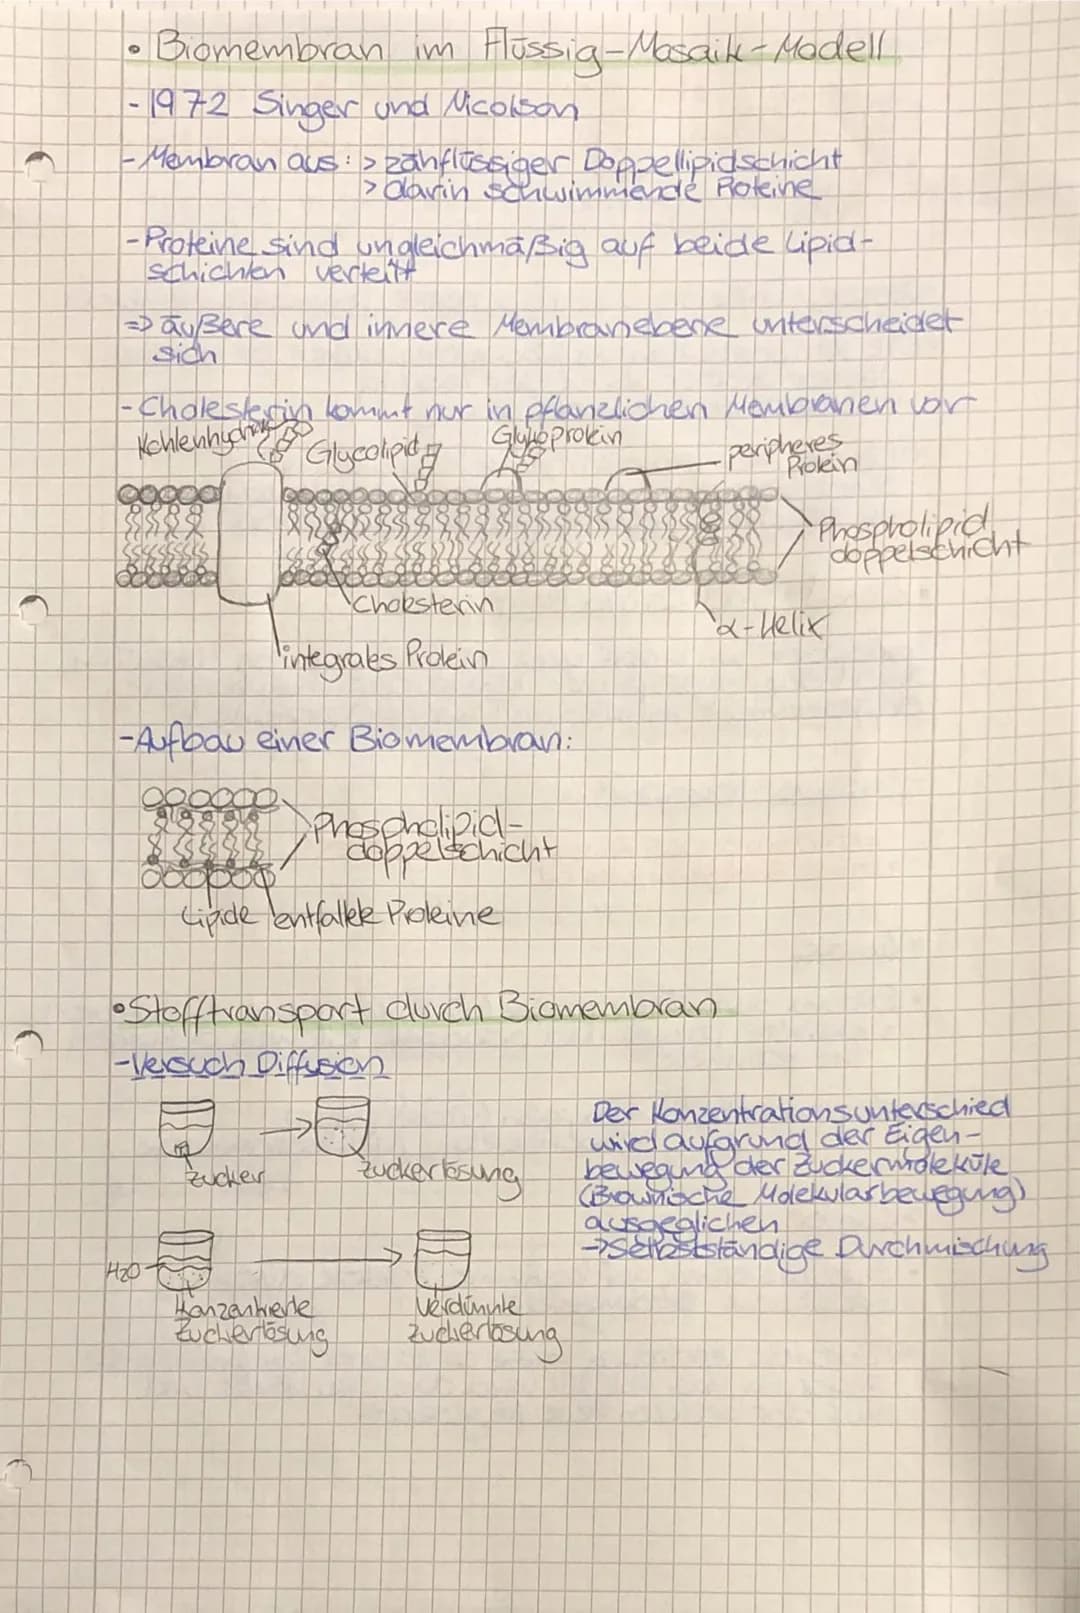 • Biomembran im Flüssig-Mosaik-Modell
- 1972 Singer und Nicolson
- Membran aus: > zähflüssiger Doppellipidschicht
> darin schwimmende Proteine
- Proteine sind ungleichmäßig auf beide Lipid-
schichten verteilt
=> äußere und innere Membranebene unterscheidet
sich
- Cholesterin kommt nur in pflanzlichen Membranen vor
Kohlenhydrat
Glycolipid
Glykoprotein
peripheres
Protein
Phospholipid
doppelschicht
Cholesterin
α-Helix
integrales Protein
- Aufbau einer Biomembran:
Phospholipid-
doppelschicht
Lipide entfaltete Proteine
• Stofftransport durch Biomembran
- Versuch Diffusion
Zucker
Zuckerlösung
Der Konzentrationsunterschied
wird aufgrund der Eigen-
bewegung der Zuckermoleküle
(Brownische Molekularbewegung)
ausgeglichen
-> Selbstständige Durchmischung
H2O
Konzentrierte
Zuckerlösung
Verdünnte
Zuckerlösung